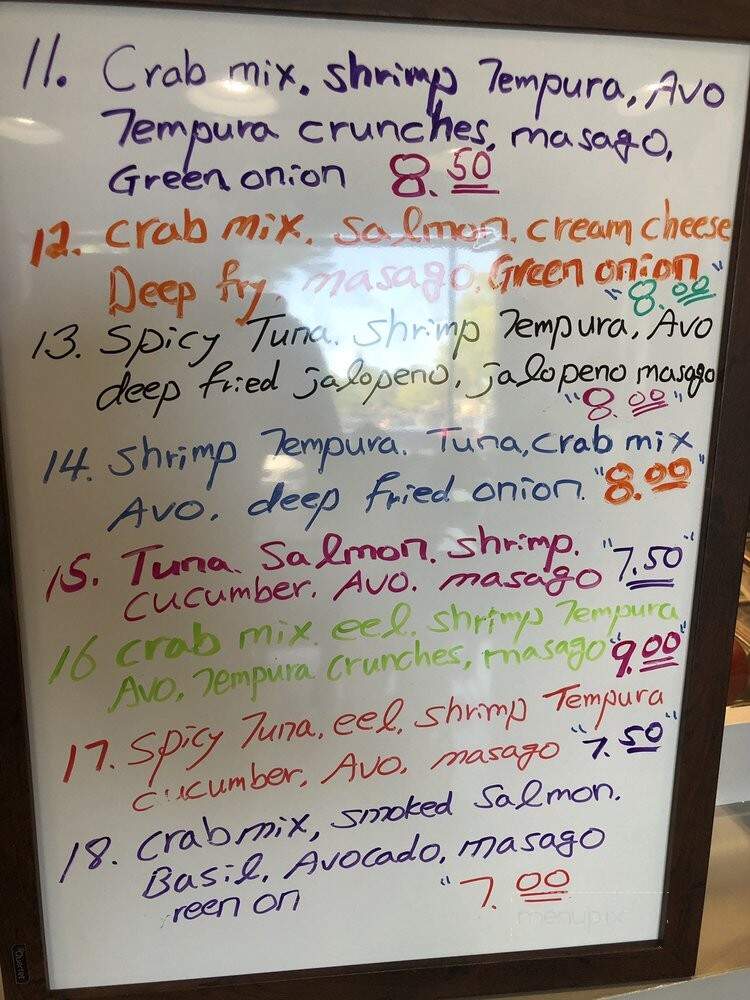 11. Crab mix, shrimp Tempura, Avo
Tempura crunches, masago,
Green onion 8.50
12. crab mix, Salmon, cream cheese
Deep fry, masago, Green onion
"8.00"
13. Spicy Tuna, shrimp Tempura, Avo
deep fried jalopeno, jalopeno masago
"8.00"
14. Shrimp Tempura. Tuna, crab mix
Avo, deep fried onion. "8.00"
15. Tuna. Salmon. shrimp.
cucumber, Avo. masago "7.50"
16 crab mix eel, shrimp Tempura
Avo, Tempura crunches, masago "9.00"
17. Spicy Tuna, eel, shrimp Tempura
cucumber, Avo. masago "7.50"
18. crab mix, smoked Salmon.
Basil, Avocado, masago
reen on "7.00
menupix
Quartet